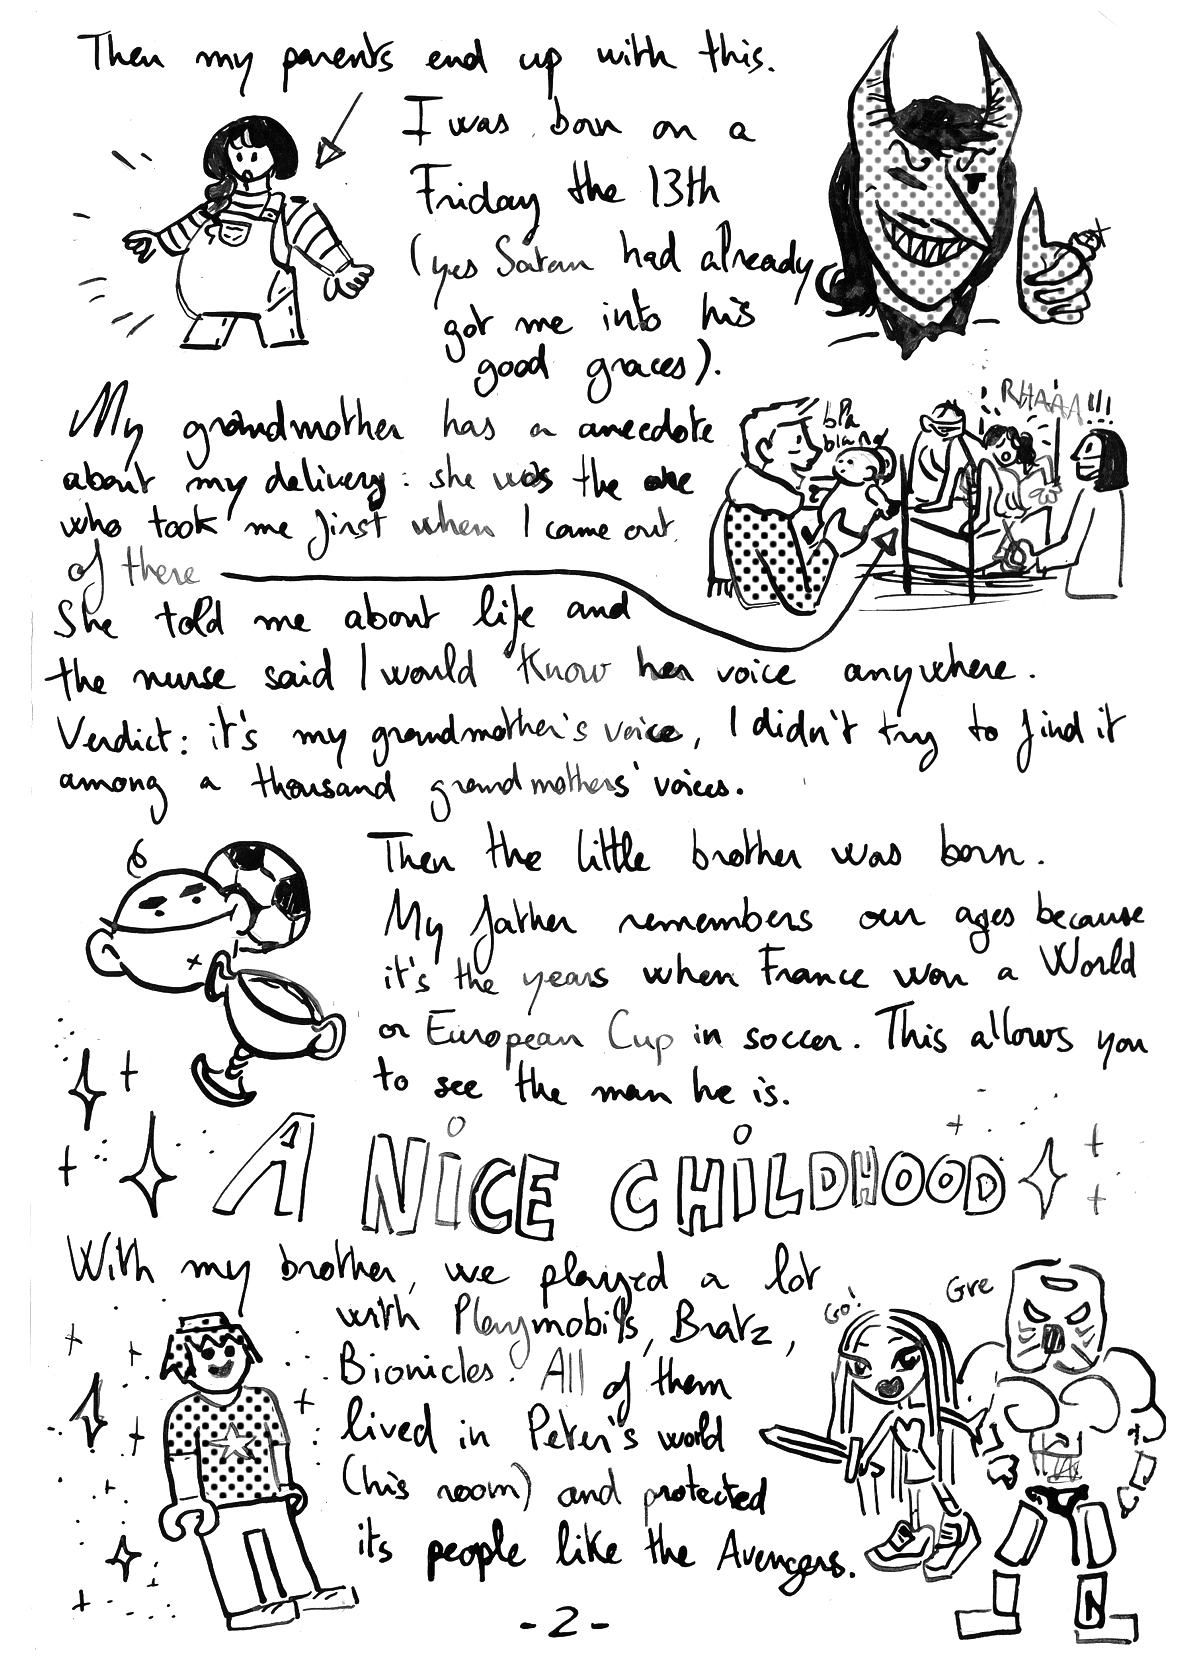 Then my parents end up with this.
I was born on a
Friday the 13th
(yes Satan had already
got me into his
good graces).
RHAAA!!!
bla
bla
My grandmother has a anecdote
about my delivery: she was the one
who took me first when I came out
of there
She told me about life and
the nurse said I would know her voice anywhere.
Verdict: it's my grandmother's voice, I didn't try to find it
among a thousand grandmothers' voices.
Then the little brother was born.
My father remembers our ages because
it's the years when France won a World
or European Cup in soccer. This allows you
to see the man he is.
A NiCE CHiLDHOOD
With my brother, we played a lot
with Playmobils, Bratz,
Bionicles. All of them
lived in Peter's world
(his room) and protected
its people like the Avengers.
Go!
Gre
-2-